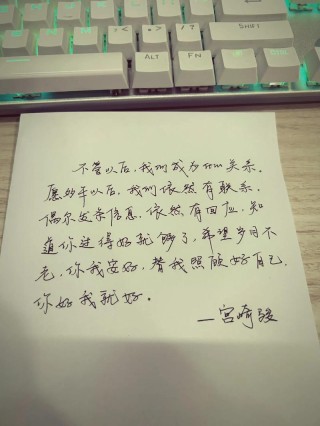 < >
? /
SHIFT
ALT
FN
不管以后,我们成为什么关系。
愿多年以后,我们依然有联系,
偶尔发条信息,依然有回应,知
道你过得好就够了,希望岁月不
老,你我安好,替我照顾好自己,
你好我就好。
—宫崎骏